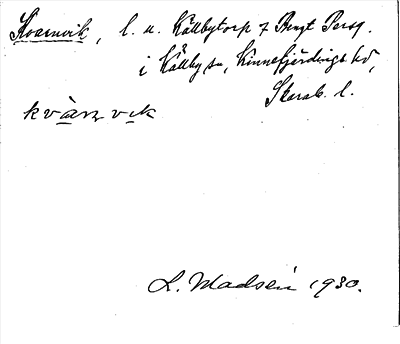 Kvarnvik, l. u. Källbytorp 7 Bengt Persg.
i Källby sn, Kinnefjärdings hd,
Skarab. l.
kvà̱rn vi̱k
L. Madsén 1930.